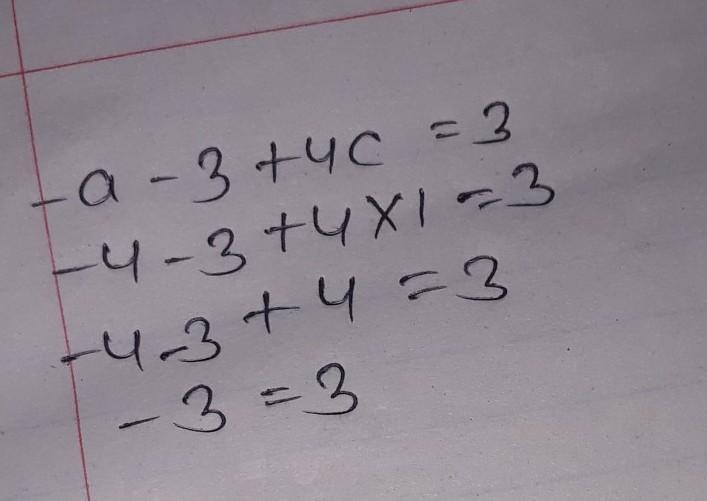 -a - 3 + 4c = 3
-4 - 3 + 4 × 1 = 3
-4 - 3 + 4 = 3
-3 = 3